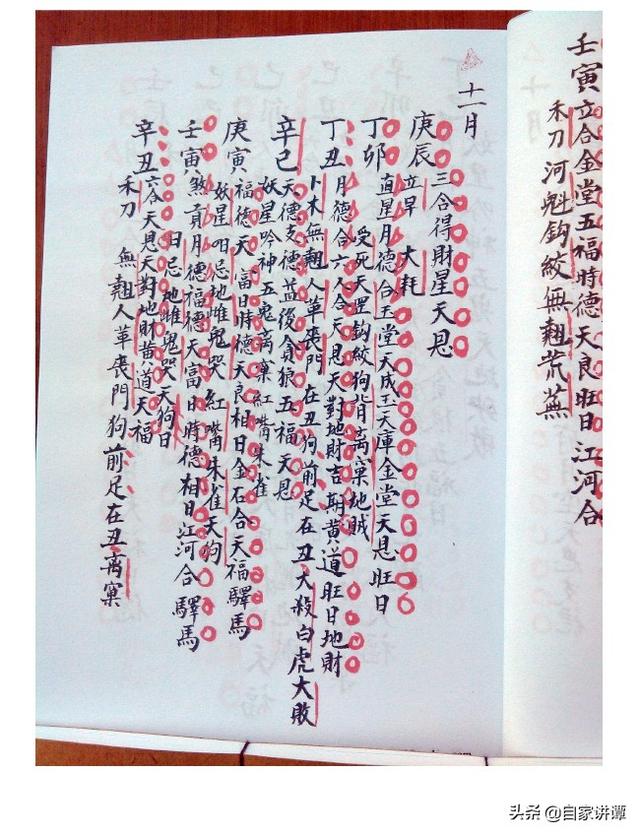 壬寅 立合金堂五福時德天良旺日江河合
禾刀河魁鈎絞無翹荒蕪
十一月
庚辰 三合得財星天恩
立早 大耗
丁卯 直星月德合玉堂天成玉天庫金堂天恩旺日
受死天罡鈎絞狗背离窠地賊
丁丑 月德合六合天恩天對地財吉期黄道旺日地財
卜木無翹人草喪門在丑狗前足在丑大殺白虎大敗
辛巳 天德支德益後貪狼五福天恩
妖星吟神五鬼离窠紅嘴朱雀
庚寅 福德天富日時德天良相日金石合天福驛馬
妖星四忌地雌鬼哭紅嘴朱雀天狗
壬寅 煞貢月德福德天富日時德相日江河合驛馬
四忌地雌鬼哭天狗日
辛丑 六合天恩天對地財黄道天福
禾刀 無翹人草喪門狗前足在丑离窠
头条 @自家讲谭